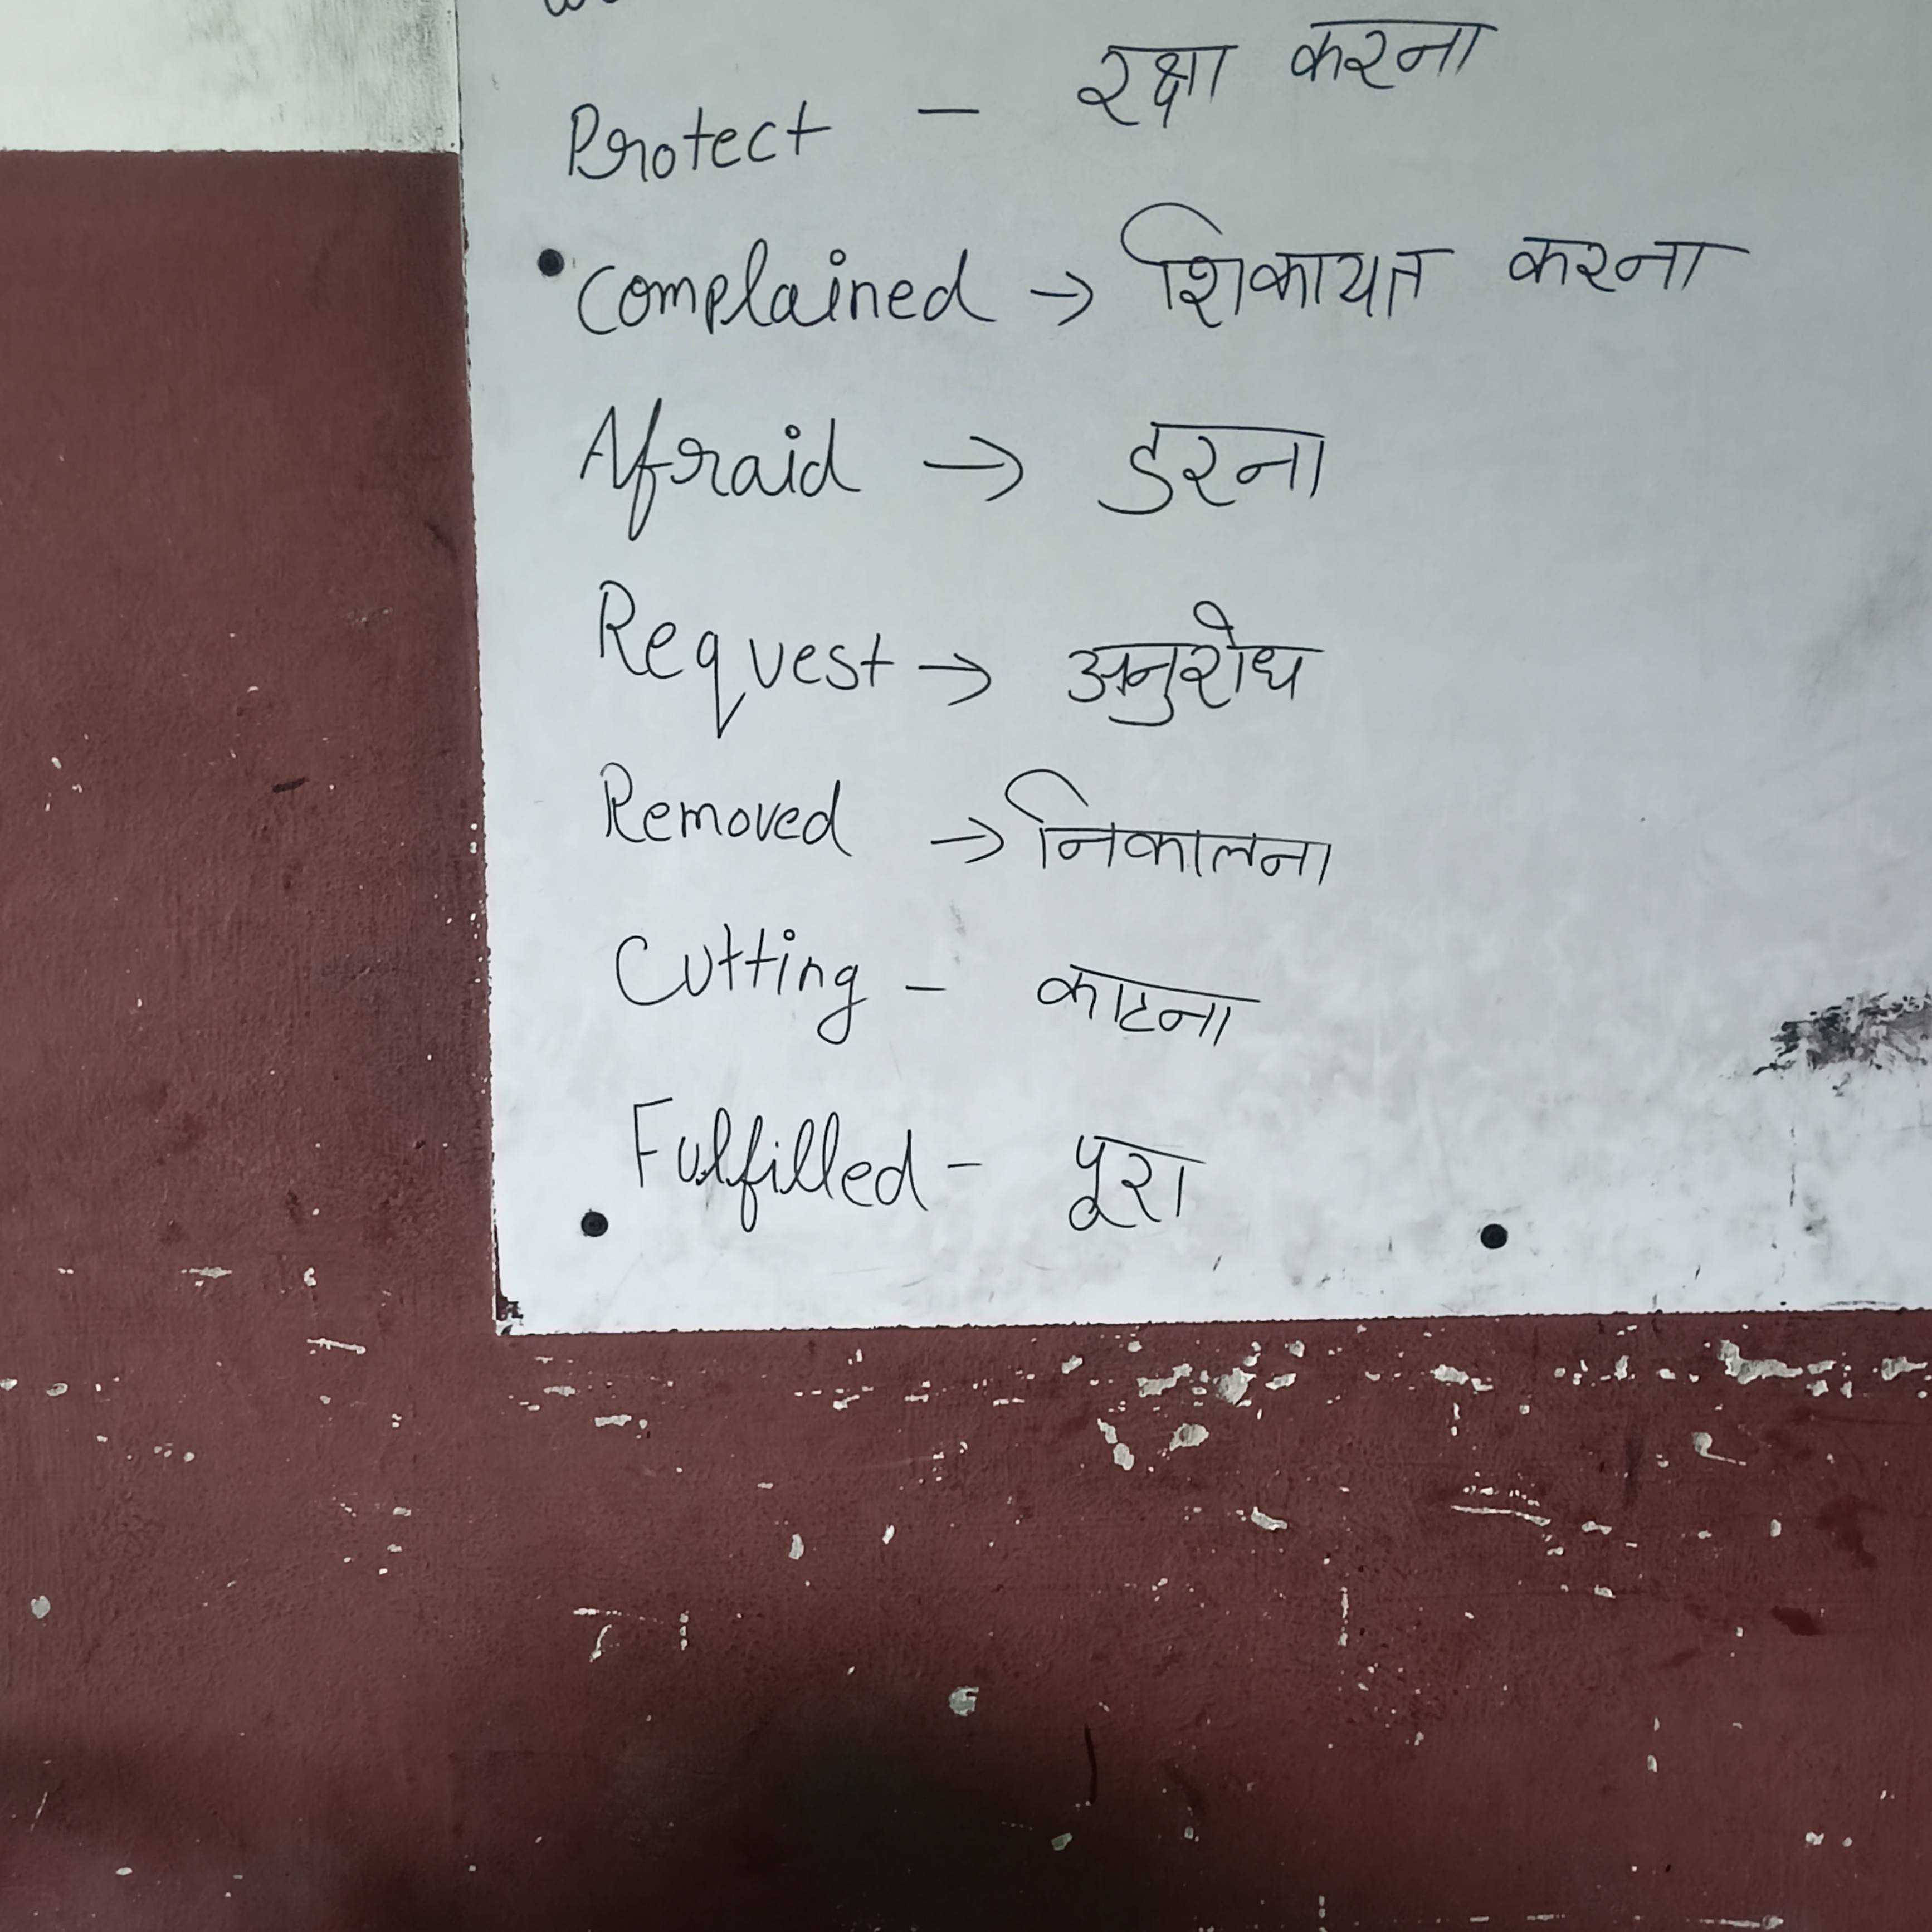 Protect - रक्षा करना
Complained → शिकायत करना
Afraid → डरना
Request → अनुरोध
Removed → निकालना
Cutting - काटना
Fulfilled - पूरा